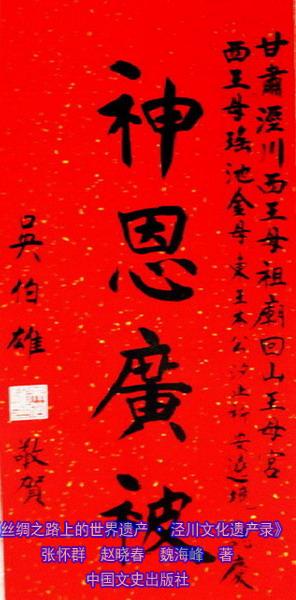 甘肅涇川西王母祖廟回山王母宮
西王母瑤池金母東王木公汐止 慶
神恩廣被
吳伯雄 敬賀
丝绸之路上的世界遗产 · 泾川文化遗产录》
张怀群 赵晓春 魏海峰 著
中国文史出版社